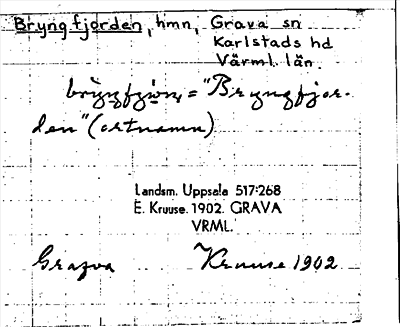 Bryngfjorden, hmn, Grava sn
Karlstads hd
Värml. län.
= "Bryngfjor-
den" (ortnamn)
Landsm. Uppsala 517:268
E. Kruuse. 1902. GRAVA
VRML.
Grafva Kruuse 1902